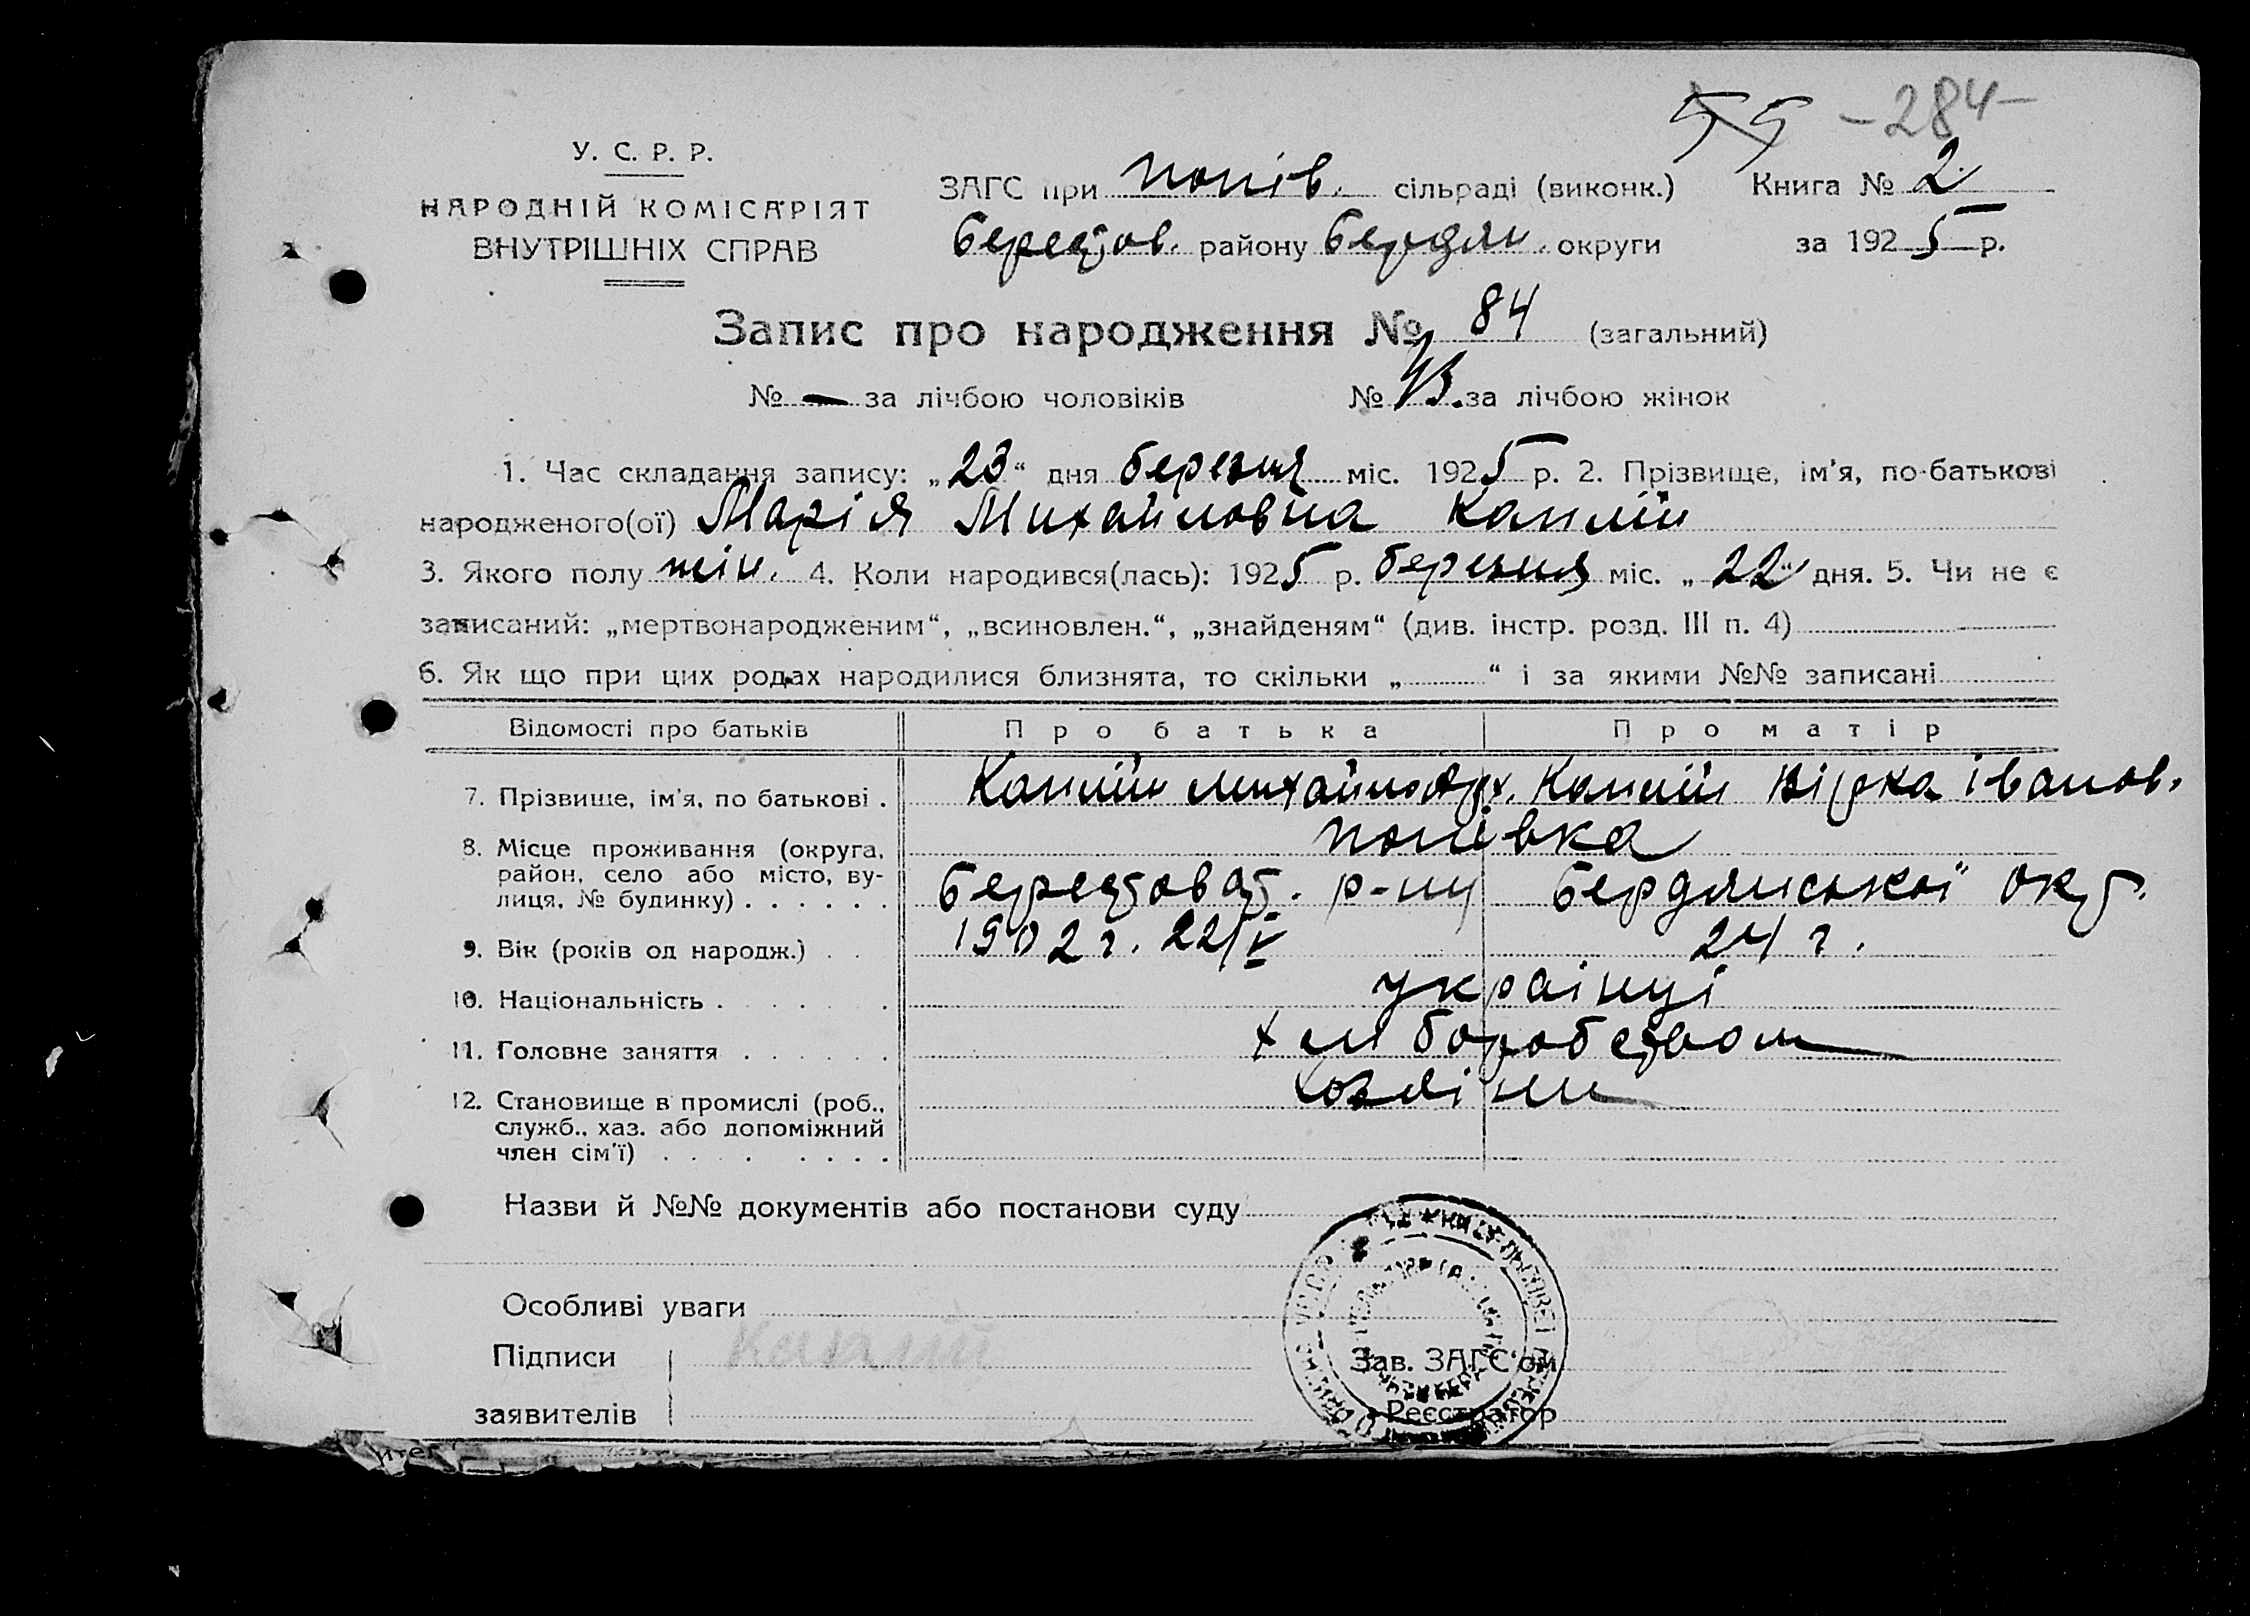 55 -284-
У. С. Р. Р.
НАРОДНІЙ КОМІСАРІЯТ
ВНУТРІШНІХ СПРАВ
ЗАГС при Попів. сільраді (виконк.) Книга № 2
Берестов. району Бердян. округи за 1925 р.
Запис про народження № 84 (загальний)
№ — за лічбою чоловіків № 43. за лічбою жінок
1. Час складання запису: „23“ дня березня міс. 1925 р. 2. Прізвище, ім'я, по-батькові
народженого(ої) Марія Михайловна Каплій
3. Якого полу жін. 4. Коли народився(лась): 1925 р. березня міс. „22“ дня. 5. Чи не є
записаний: „мертвонародженим“, „всиновлен.“, „знайденям“ (див. інстр. розд. III п. 4)
6. Як що при цих родах народилися близнята, то скільки „ “ і за якими №№ записані
Відомості про батьків Про батька Про матір
7. Прізвище, ім'я, по батькові . Каплій Михайло Каплій Вірка Іванов.
8. Місце проживання (округа, район, село або місто, вулиця, № будинку) . . . . . . Попівка
Берестоват. р-ну Бердянської окр.
9. Вік (років од народж.) . . 1902 г. 22/V 24 г.
10. Національність . . . . . українці
11. Головне заняття . . . . . . хліборобством
12. Становище в промислі (роб., служб., хаз. або допоміжний член сім'ї) . . . . . . . .
Назви й №№ документів або постанови суду
Особливі уваги
Підписи Каплій Зав. ЗАГС'ом
заявителів Реєстратор